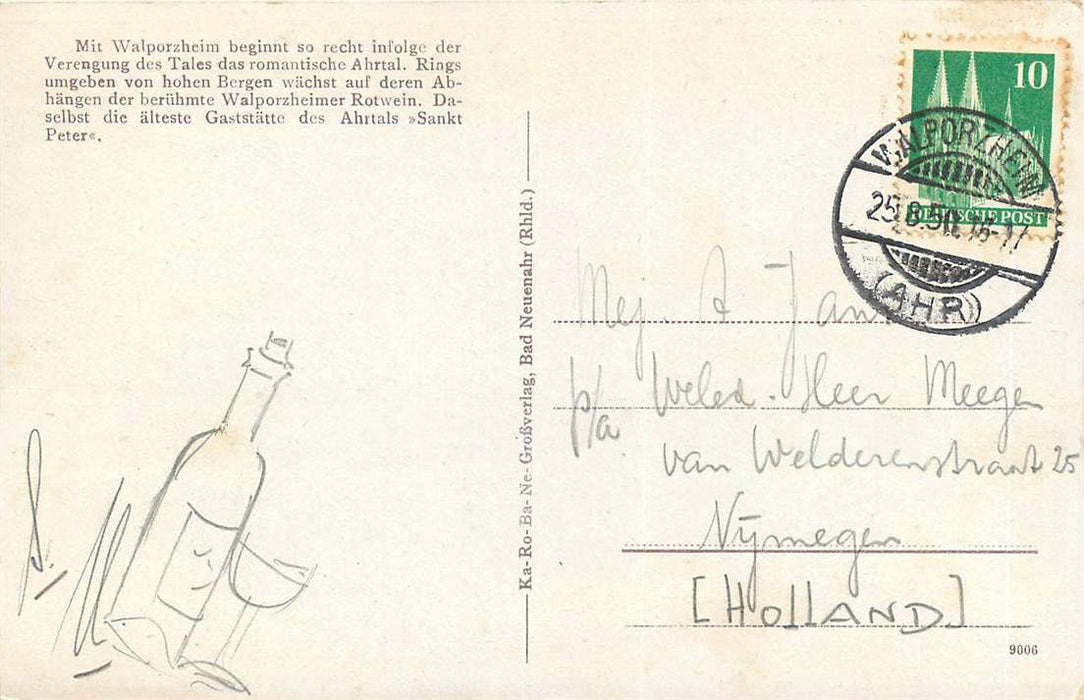 Mit Walporzheim beginnt so recht infolge der
Verengung des Tales das romantische Ahrtal. Rings
umgeben von hohen Bergen wächst auf deren Ab-
hängen der berühmte Walporzheimer Rotwein. Da-
selbst die älteste Gaststätte des Ahrtals »Sankt
Peter«.
Ka-Ro-Ba-Ne-Großverlag, Bad Neuenahr (Rhld.)
10
DEUTSCHE POST
WALPORZHEIM
25.8.50.16-17
(AHR)
Mej. A Jan
p/a Weled. Heer Meegen
van Welderenstraat 25
Nijmegen
[HOLLAND]
9006